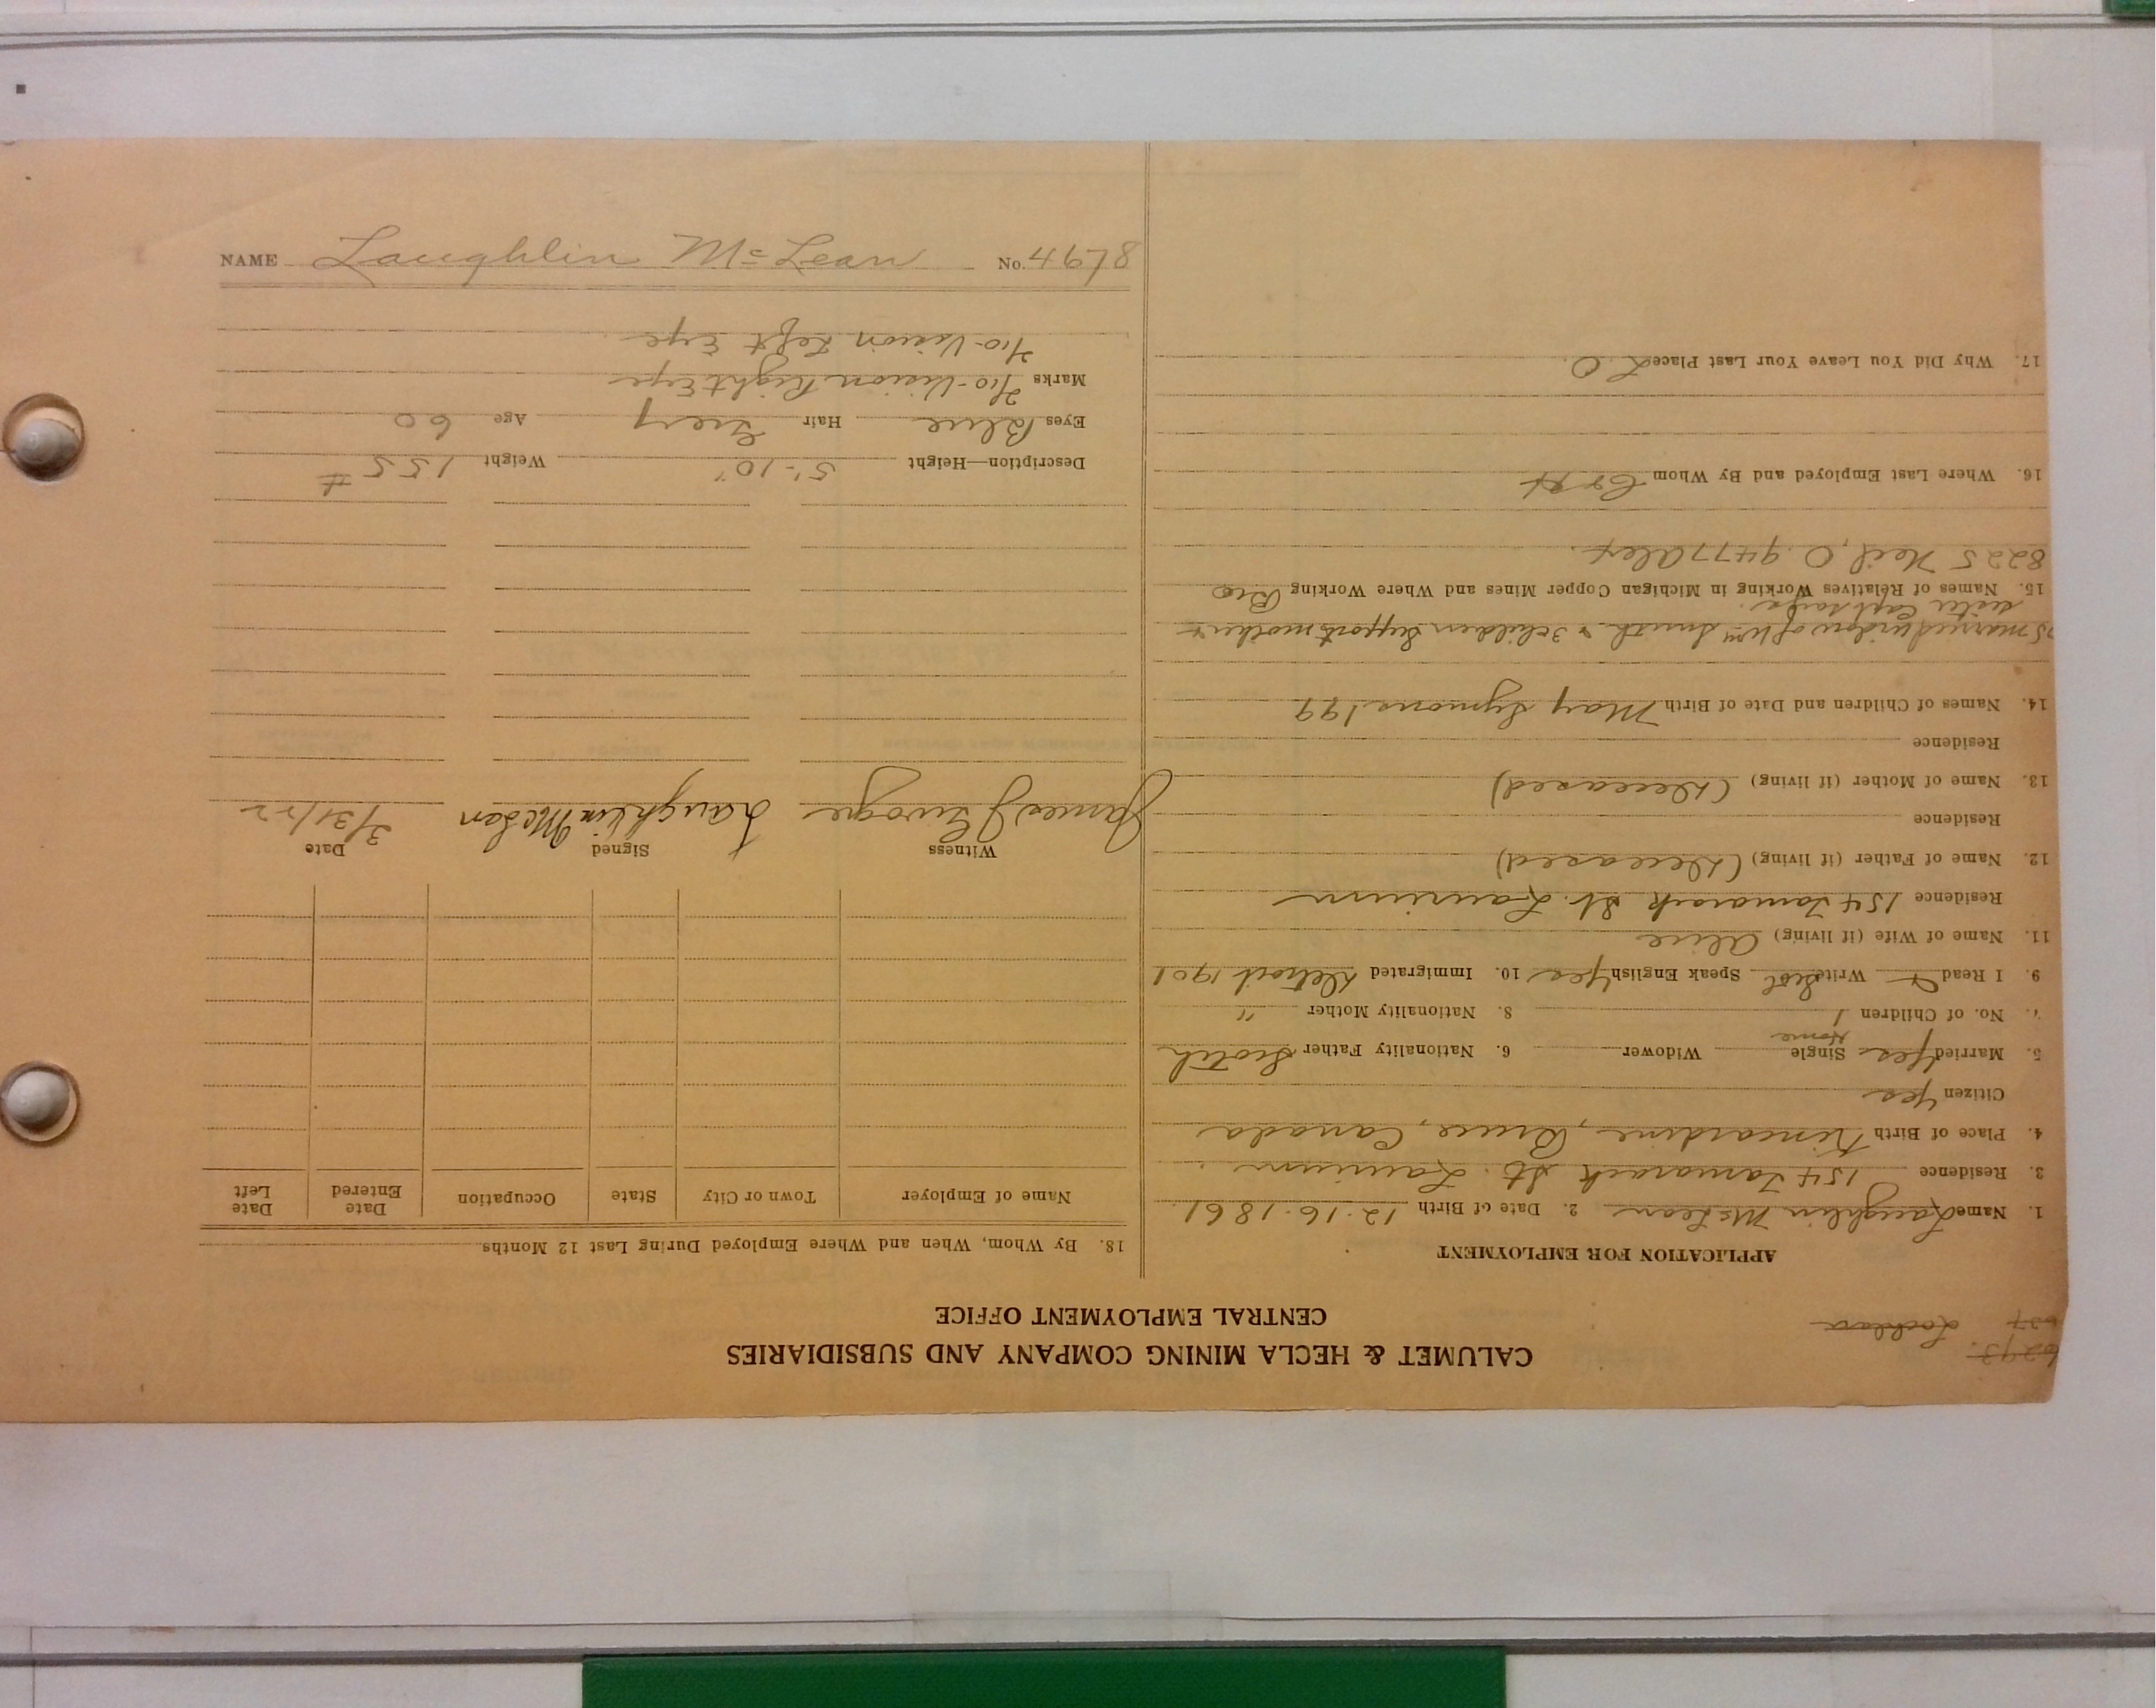 6293.
637 Lochlan
CALUMET & HECLA MINING COMPANY AND SUBSIDIARIES
CENTRAL EMPLOYMENT OFFICE
APPLICATION FOR EMPLOYMENT
1. Name Laughlin McLean 2. Date of Birth 12-16-1861
3. Residence 154 Tamarack St. Laurium
4. Place of Birth Kincardine, Bruce, Canada
Citizen Yes
5. Married Yes Single Home Widower 6. Nationality Father Scotch
7. No. of Children 1 8. Nationality Mother "
9. I Read Write Speak English Yes 10. Immigrated Detroit 1901
11. Name of Wife (if living) Alice
Residence 154 Tamarack St. Laurium
12. Name of Father (if living) (Deceased)
Residence
13. Name of Mother (if living) (Deceased)
Residence
14. Names of Children and Date of Birth May Symons 199
married widow of Wm Smith & 3 children support mother &
sister
15. Names of Relatives Working in Michigan Copper Mines and Where Working Bro
8225 Neil, O 9477 Alex.
16. Where Last Employed and By Whom C & H
17. Why Did You Leave Your Last Place L.O.
18. By Whom, When and Where Employed During Last 12 Months
Name of Employer Town or City State Occupation Date Entered Date Left
Witness Signed Date
James J Laughlin McLean 3/31/22
Description—Height 5'-10" Weight 155 #
Eyes Blue Hair Grey Age 60
Marks 7/10-Vision Right Eye
7/10-Vision Left Eye
NAME Laughlin McLean No. 49678